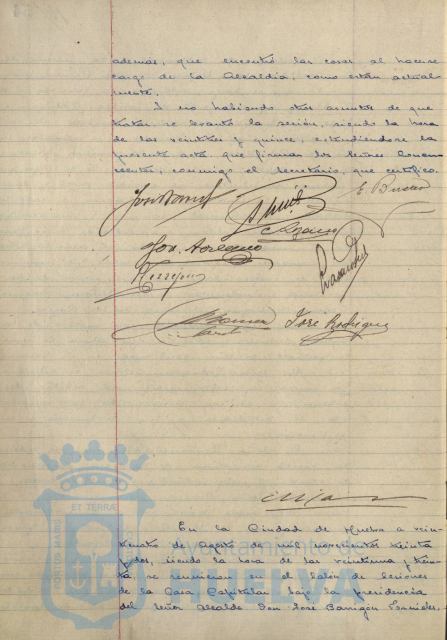 además, que encontró las cosas al hacerse
cargo de la Alcaldía, como están actual
mente.
Y no habiendo otros asuntos de que
tratar, se levantó la sesión, siendo la hora
de las veintitres y quince, extendiendose la
presente acta, que firman los Señores Concu
rrentes, conmigo el Secretario, que certifico.
José Rodriguez
En la Ciudad de Huelva a vein
ticuatro de Agosto de mil novecientos treinta
y dos, siendo la hora de las veintiuna y trein
ta, se reunieron en el Salón de Sesiones
de la Casa Capitular bajo la presidencia
del Señor Alcalde Don José Barrigón
PORTUS MARIS
ET TERRÆ
CUSTODIA
Ayuntamiento de
HUELVA